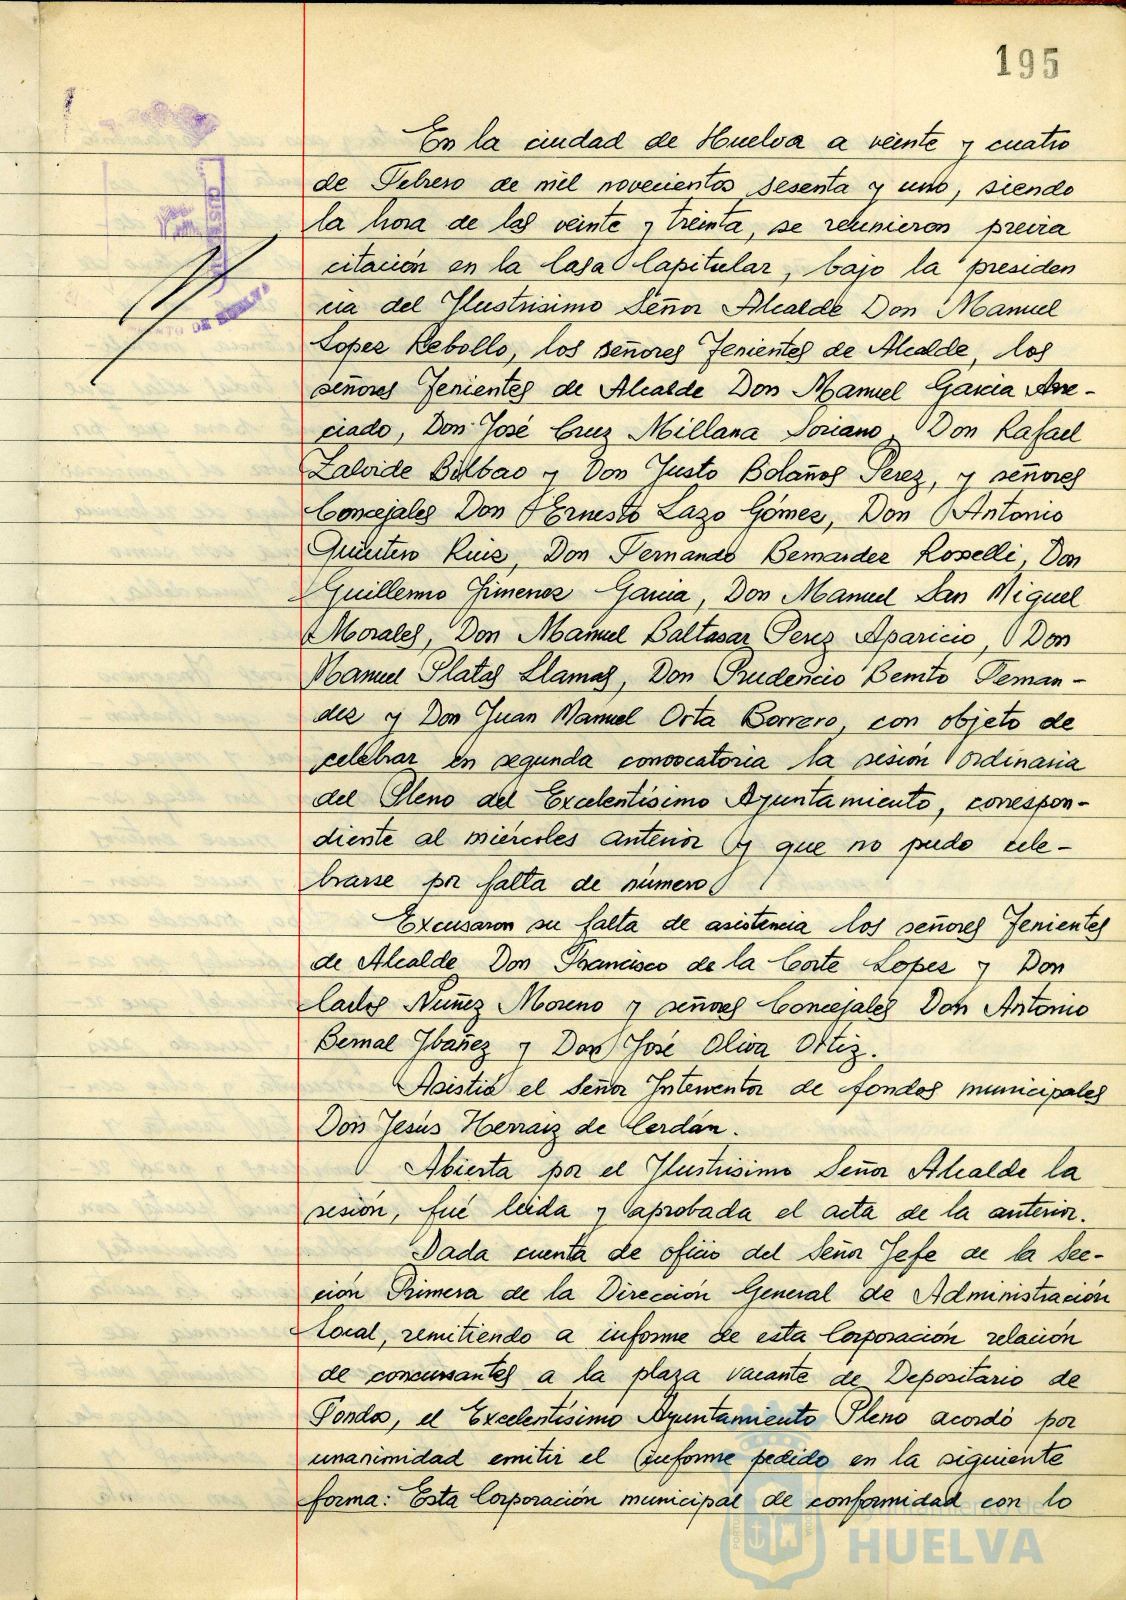 195
En la ciudad de Huelva a veinte y cuatro
de Febrero de mil novecientos sesenta y uno, siendo
la hora de las veinte y treinta, se reunieron previa
citación en la Casa Capitular, bajo la presiden
cia del Ilustrisimo Señor Alcalde Don Manuel
Lopez Rebollo, los señores Tenientes de Alcalde, los
señores Tenientes de Alcalde Don Manuel Garcia Arre-
ciado, Don José Cruz Millana Soriano, Don Rafael
Zalvide Bilbao y Don Justo Bolaños Perez, y señores
Concejales Don Ernesto Lazo Gómez, Don Antonio
Quintero Ruiz, Don Fernando Bernardez Rosselli, Don
Guillermo Jimenez Garcia, Don Manuel San Miguel
Morales, Don Manuel Baltasar Perez Aparicio, Don
Manuel Platas Llamas, Don Prudencio Benito Fernan-
dez y Don Juan Manuel Orta Borrero, con objeto de
celebrar en segunda convocatoria la sesión ordinaria
del Pleno del Excelentísimo Ayuntamiento, correspon-
diente al miércoles anterior y que no pudo cele-
brarse por falta de número.
Excusaron su falta de asistencia los señores Tenientes
de Alcalde Don Francisco de la Corte Lopez y Don
Carlos Nuñez Moreno y señores Concejales Don Antonio
Bernal Ibáñez y Don José Oliva Ortiz.
Asistió el Señor Interventor de fondos municipales
Don Jesús Herraiz de Cerdán.
Abierta por el Ilustrisimo Señor Alcalde la
sesión, fué leida y aprobada el acta de la anterior.
Dada cuenta de oficio del Señor Jefe de la Sec-
ción Primera de la Dirección General de Administración
Local, remitiendo a informe de esta Corporación relación
de concursantes a la plaza vacante de Depositario de
Fondos, el Excelentísimo Ayuntamiento Pleno acordó por
unanimidad emitir el informe pedido en la siguiente
forma: Esta Corporación municipal de conformidad con lo
DE HUELVA
Ayuntamiento de
HUELVA